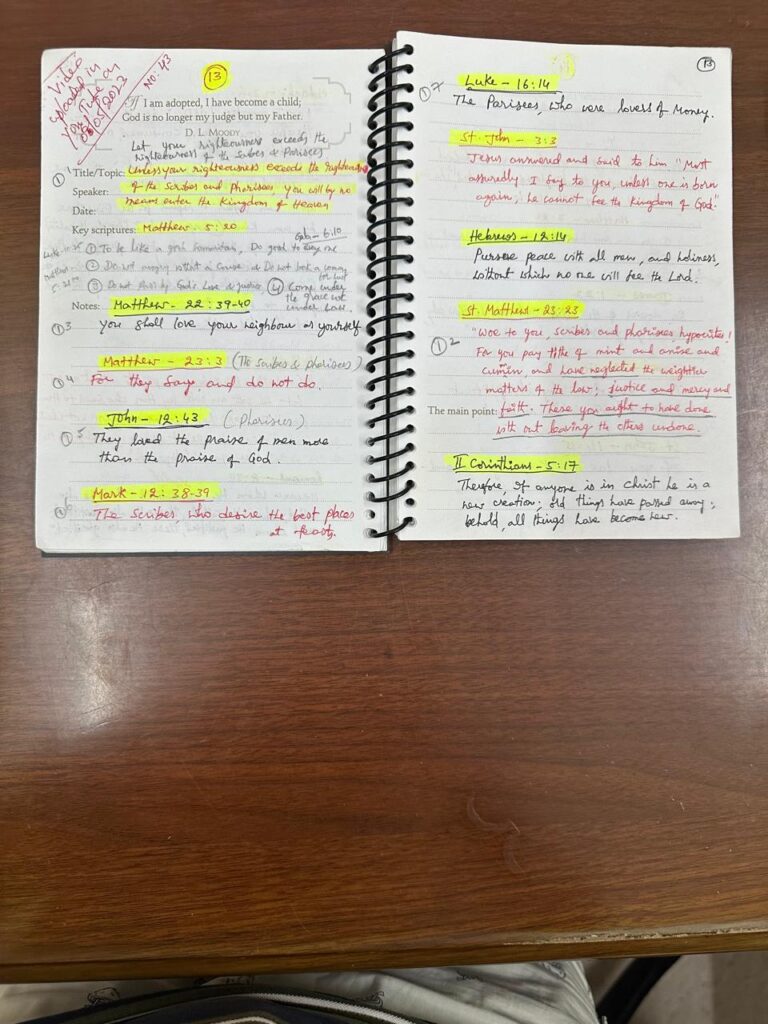 Video
uploaded in
You Tube on
05/2023
NO: 43
13
If I am adopted, I have become a child;
God is no longer my judge but my Father.
D. L. MOODY
Let your righteousness exceeds the
righteousness of the Scribes & Parisees
① Title/Topic: Unless your righteousness exceeds the righteousness
Speaker: of the Scribes and Pharisees, you will by no
Date: means enter the Kingdom of Heaven
Key scriptures: Matthew - 5:20
Gal - 6:10
① To be like a good Samaritan, Do good to every one
② Do not angry without a Cause & Do not look a woman
for lust
③ Do not God's Love & justice, ④ Come under
the grace not
under Law.
Notes: Matthew - 22:39-40
① 3 You shall love your neighbour as yourself
Matthew - 23:3 (The Scribes & pharisees)
① 4 For they Say, and do not do.
John - 12:43 (Pharisees)
① 5 They loved the praise of men more
than the praise of God.
Mark - 12:38-39
The Scribes, who desire the best places
at feasts.
13
① 7 Luke - 16:14
The Parisees, Who were lovers of Money.
St. John - 3:3
Jesus answered and Said to him "Most
assuredly I Say to you, unless one is born
again, he cannot see the Kingdom of God."
Hebrews - 12:14
Pursue peace with all men, and holiness,
without which no one will see the Lord.
St. Matthew - 23:23
"Woe to you, scribes and pharisees hypocrites!
① 2 For you pay tithe of mint and anise and
cumin, and have neglected the weightier
matters of the law; justice and mercy and
The main point: faith. These you ought to have done
with out leaving the others undone.
II Corinthians - 5:17
Therefore, If anyone is in Christ he is a
new creation; old things have passed away;
behold, all things have become new.